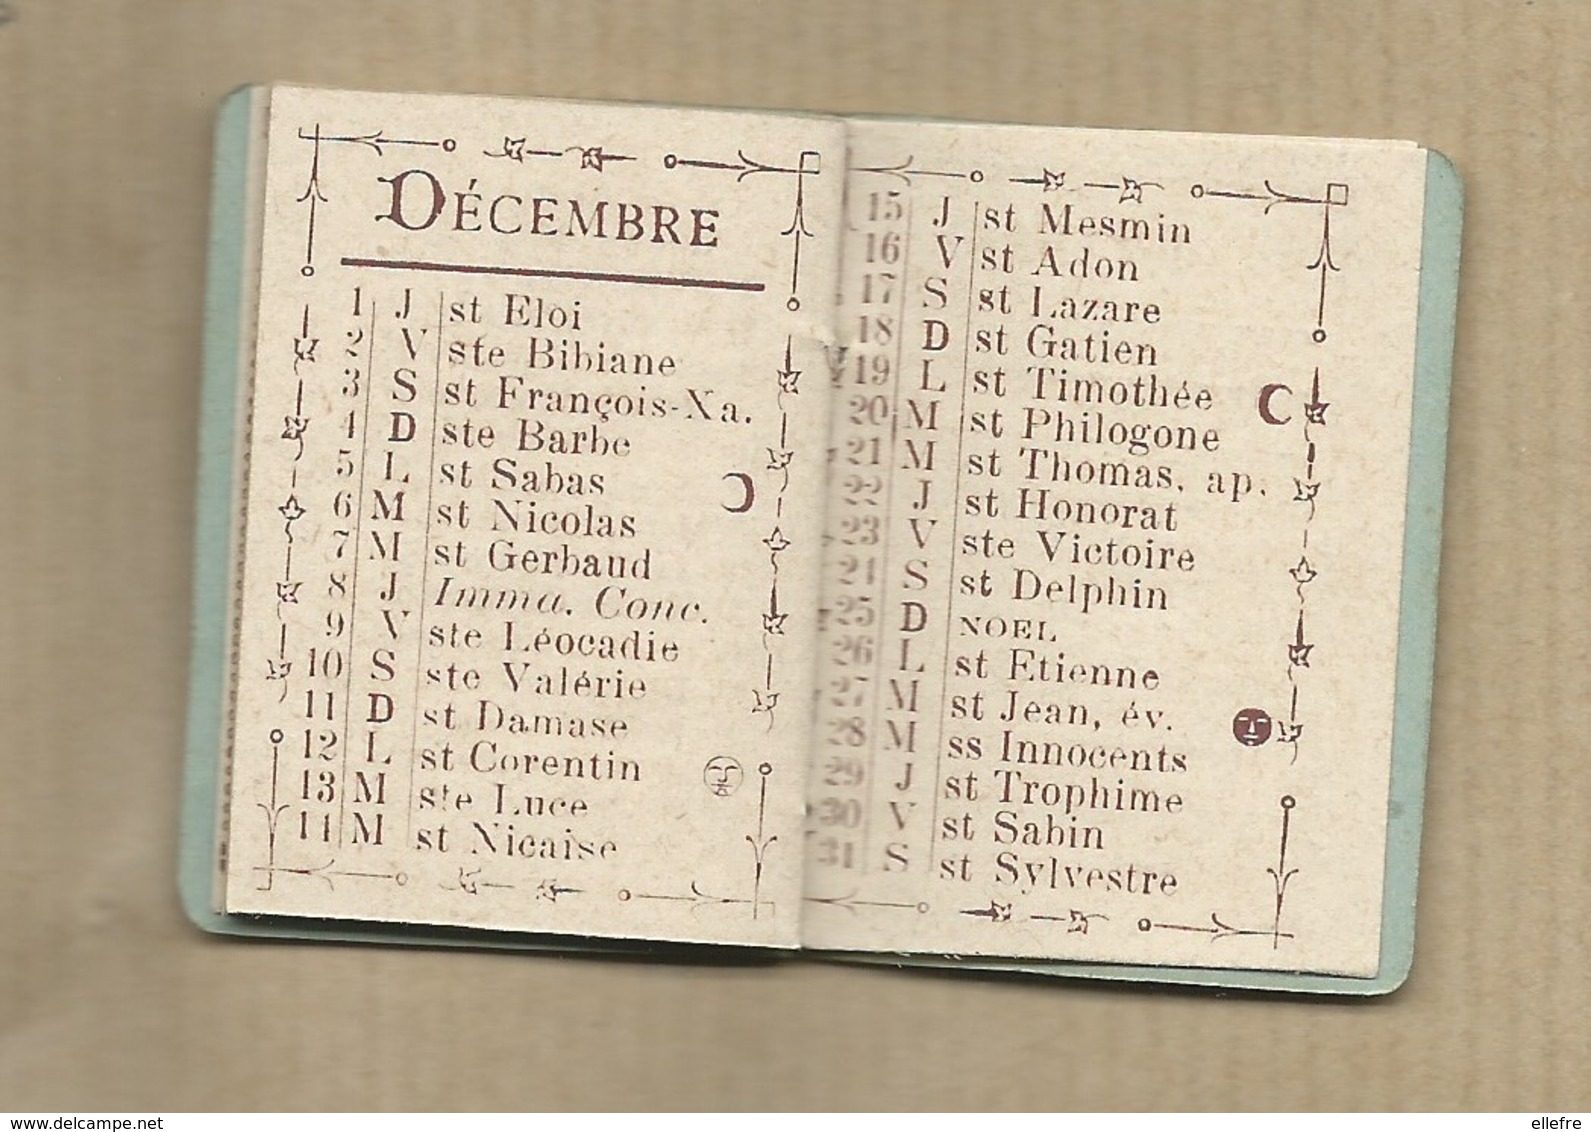 DÉCEMBRE
1 J st Eloi
2 V ste Bibiane
3 S st François-Xa.
4 D ste Barbe
5 L st Sabas
6 M st Nicolas
7 M st Gerbaud
8 J Imma. Conc.
9 V ste Léocadie
10 S ste Valérie
11 D st Damase
12 L st Corentin
13 M ste Luce
14 M st Nicaise
15 J st Mesmin
16 V st Adon
17 S st Lazare
18 D st Gatien
19 L st Timothée
20 M st Philogone
21 M st Thomas, ap.
22 J st Honorat
23 V ste Victoire
24 S st Delphin
25 D NOEL
26 L st Etienne
27 M st Jean, év.
28 M ss Innocents
29 J st Trophime
30 V st Sabin
31 S st Sylvestre
www.delcampe.net
ellefre